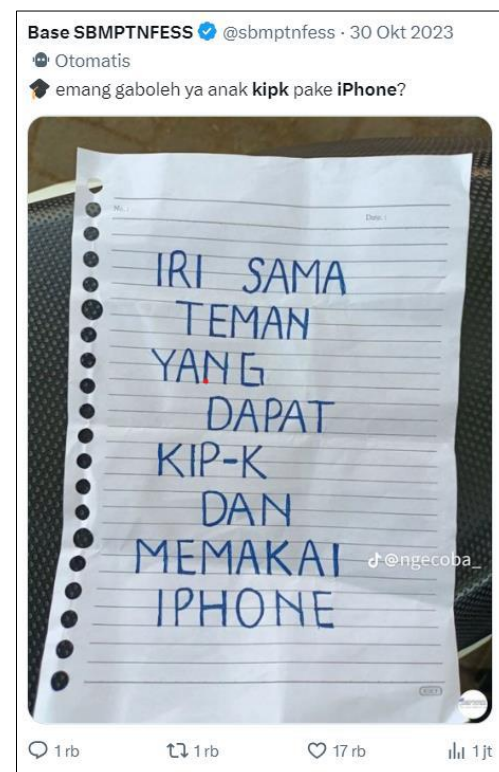 Base SBMPTNFESS @sbmptnfess · 30 Okt 2023
Otomatis
emang gaboleh ya anak kipk pake iPhone?
No :
Date :
IRI SAMA
TEMAN
YANG
DAPAT
KIP-K
DAN
MEMAKAI
@ngecoba_
IPHONE
1 rb 1 rb 17 rb 1 jt